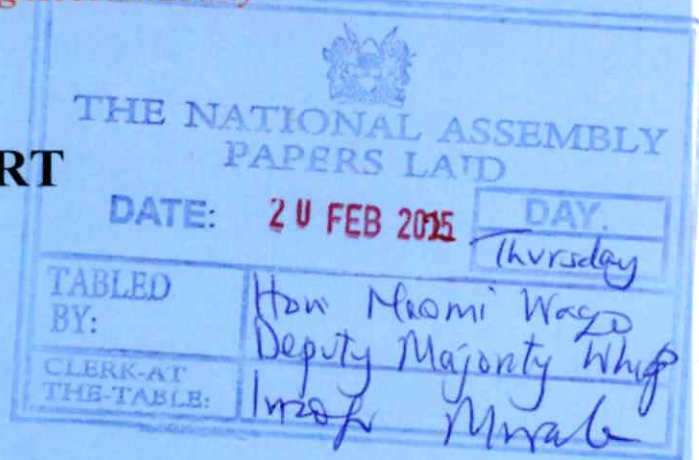 THE NATIONAL ASSEMBLY
PAPERS LAID
RT
DATE: 20 FEB 2025 DAY.
Thursday
TABLED BY: Hon Naomi Waqo
Deputy Majority Whip
CLERK-AT THE-TABLE: